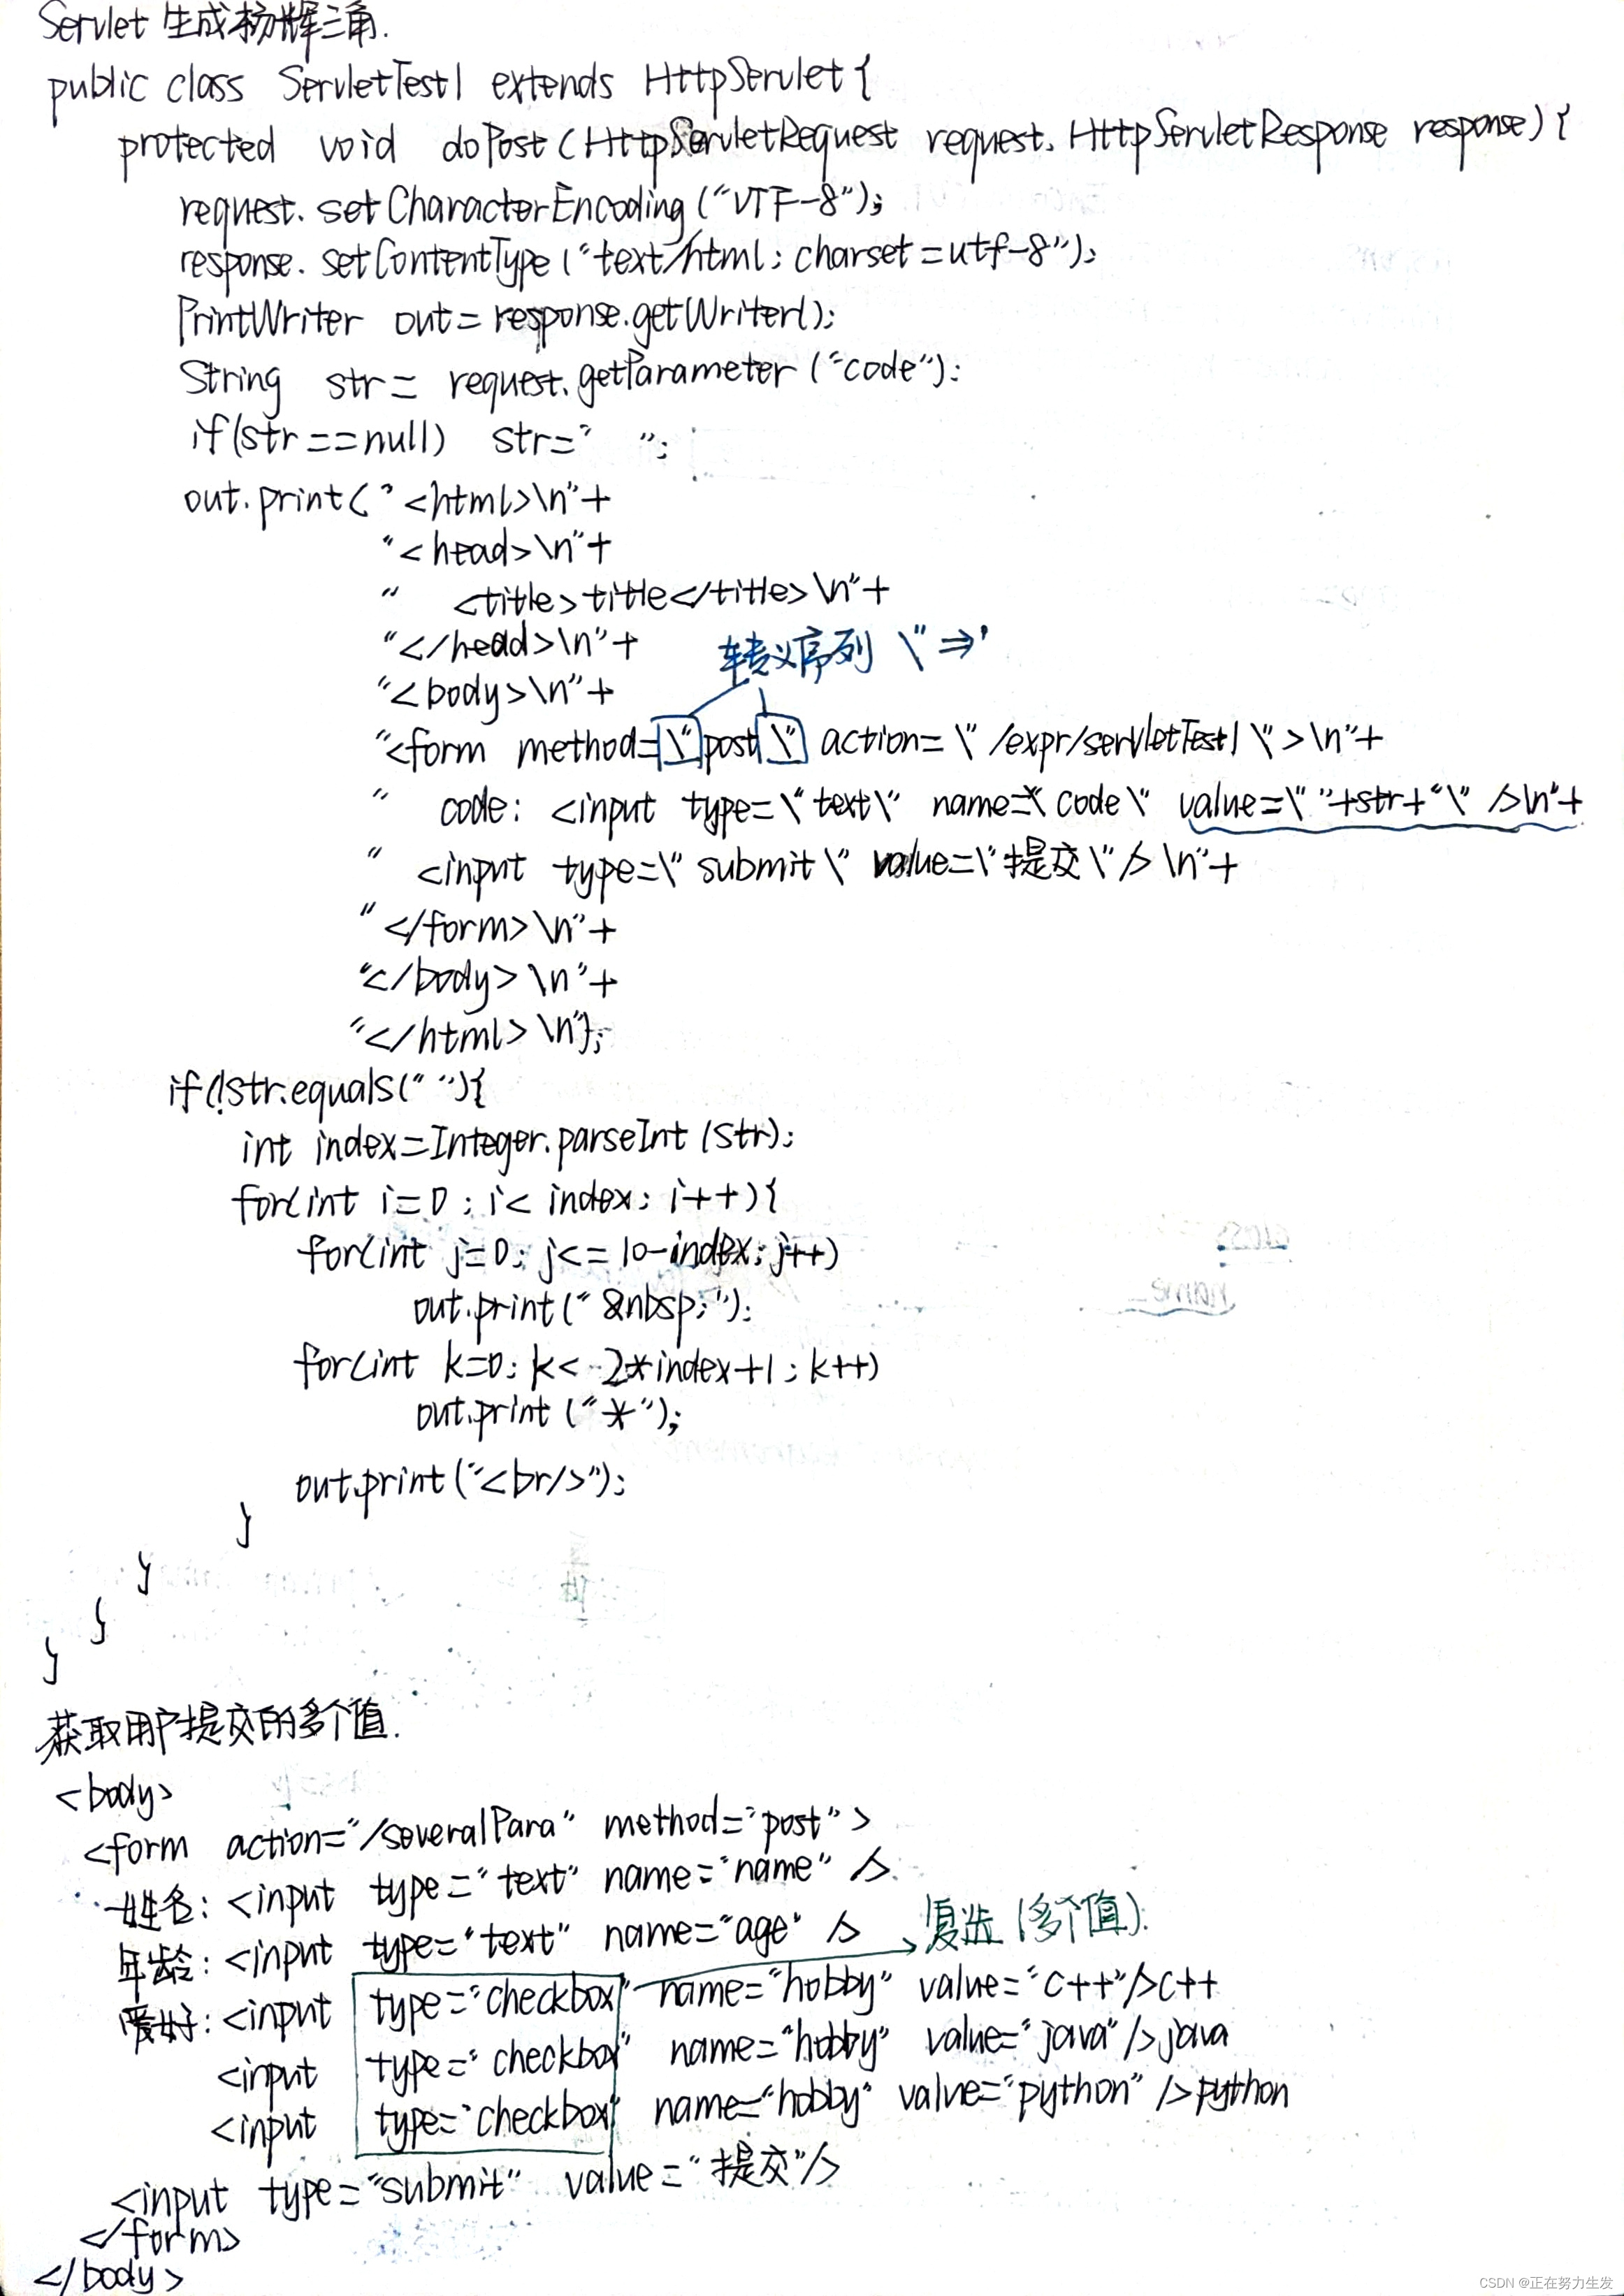 Servlet 生成杨辉三角.
public class ServletTest1 extends HttpServlet{
protected void doPost(HttpServletRequest request, HttpServletResponse response){
request.setCharacterEncoding("UTF-8");
response.setContentType("text/html; charset=utf-8");
PrintWriter out=response.getWriter();
String str= request.getParameter("code");
if(str==null) str=" ";
out.print("<html>\n"+
"<head>\n"+
" <title>title</title>\n"+
"</head>\n"+
转义序列 \" ⇒ '
"<body>\n"+
"<form method=\"post\" action=\"/expr/servletTest1\">\n"+
" code: <input type=\"text\" name=\"code\" value=\""+str+"\" />\n"+
" <input type=\"submit\" value=\"提交\"/>\n"+
"</form>\n"+
"</body>\n"+
"</html>\n");
if(!str.equals(" "){
int index=Integer.parseInt(str);
for(int i=0; i< index; i++){
for(int j=0; j<=10-index; j++)
out.print("&nbsp;");
for(int k=0; k< 2*index+1; k++)
out.print("*");
out.print("<br/>");
}
}
}
}
获取用户提交的多个值.
<body>
<form action="/severalPara" method="post">
姓名: <input type="text" name="name" />
年龄: <input type="text" name="age" />
复选(多个值).
爱好: <input type="checkbox" name="hobby" value="c++"/>c++
<input type="checkbox" name="hobby" value="java"/>java
<input type="checkbox" name="hobby" value="python"/>python
<input type="submit" value="提交"/>
</form>
</body>
CSDN @正在努力生发